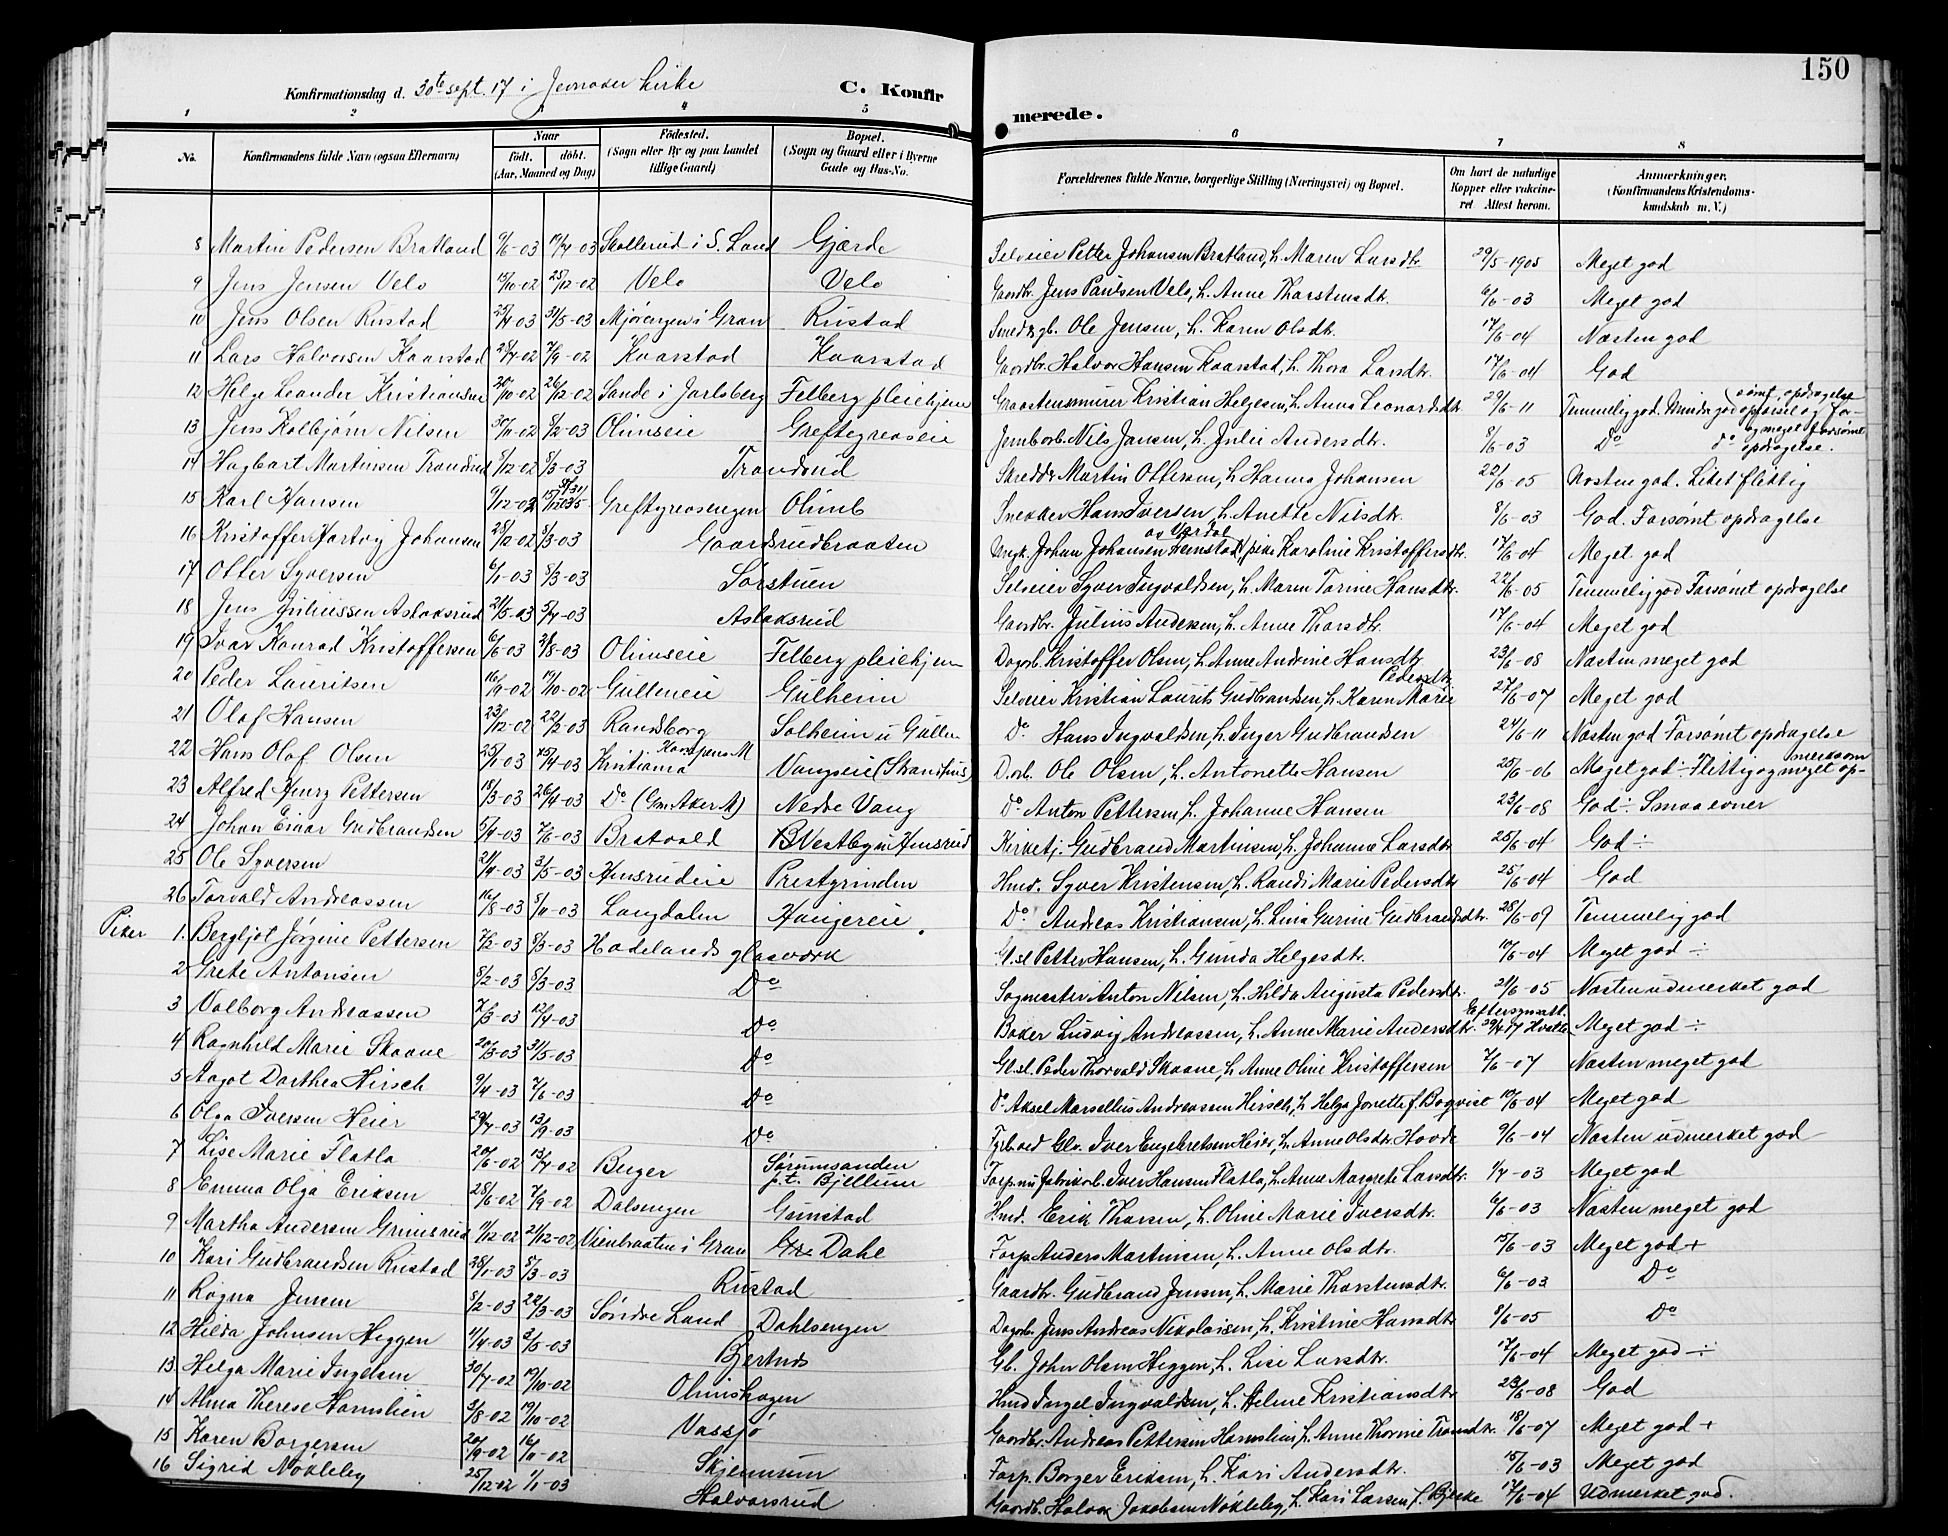 150
Konfirmationsdag d. 30te sept. 17 i Jevnaker kirke C. Konfirmerede.
1 2 3 4 5 6 7 8
No. Konfirmandens fulde Navn (ogsaa Efternavn) Naar født. døbt. (Aar, Maaned og Dag) Fødested. (Sogn eller By og paa Landet tillige Gaard) Bopæl. (Sogn og Gaard eller i Byerne Gade og Hus-No. Forældrenes fulde Navne, borgerlige Stilling (Næringsvei) og Bopæl. Om havt de naturlige Kopper eller vakcineret Attest herom. Anmerkninger. (Konfirmandens Kristendomskundskab m. V.)
8 Martin Pedersen Bratland 9/1-03 19/4-03 Skollerud i S. Land Gjærde Selveier Petter Johansen Bratland, h. Maren Larsdtr. 29/5-1905 Meget god
9 Jens Jensen Velo 15/10-02 25/12-02 Velo Velo Gaardbr. Jens Paulsen Velo, h. Anne Thorstensdtr. 6/6-03 Meget god
10 Jens Olsen Rustad 25/4-03 31/5-03 Mjørengen i Gran Rustad Smed & gb. Ole Jensen, h. Karen Olsdtr. 17/6-04 Næsten god
11 Lars Halvorsen Kaarstad 28/7-02 7/9-02 Kaarstad Kaarstad Gaardbr. Halvor Hansen Kaarstad, h. Thora Larsdtr. 17/6-04 God
12 Helge Leander Kristiansen 20/10-02 26/12-02 Sande i Jarlsberg Felberg pleiehjem Graastensmurer Kristian Helgesen, h. Anna Leonardsdtr. 29/6-11 Temmelig god. Mindre god opførsel og forsømt opdragelse
13 Jens Kolbjørn Nilsen 30/11-02 8/2-03 Olimseie Greftegreoseie Jernarb. Nils Jansen, h. Julie Andersdtr. 8/6-03 Do do og meget forsømt opdragelse.
14 Hagbart Martinsen Trandrud 8/12-02 8/3-03 Trandrud Skredder Martin Ottersen, h. Hanna Johansen 22/6-05 Næsten god. Litet flittig
15 Karl Hansen 9/12-02 Greftegreosengen Olimb Snekker Hans Iversen, h. Anette Nilsdtr. 8/6-03 God. Forsømt opdragelse
16 Kristoffer Hartvig Johansen 28/12-02 8/3-03 Gaardsrudbraaten Ungk. Johan Johansen Fremstad av Vardal, pike Karoline Kristoffersdtr. 17/6-04 Meget god
17 Otter Syversen 6/1-03 8/3-03 Sørstuen Selveier Syver Ingvaldsen, h. Maren Torine Hansdtr. 22/6-05 Temmelig god Forsømt opdragelse
18 Jens Juliussen Aslaksrud 21/5-03 5/7-03 Aslaksrud Gaardbr. Julius Andersen, h. Anne Thorsdtr. 17/6-04 Meget god
19 Ivar Konrad Kristoffersen 6/6-03 2/8-03 Olimseie Felberg pleiehjem Dagarb. Kristoffer Olsen, h. Anne Andrine Hansdtr. 23/6-08 Næsten meget god
20 Peder Lauritsen 16/9-02 19/10-02 Gulleneie Gulheim Selveier Kristian Laurits Gudbrandsen, h. Karen Marie Pedersdtr. 27/6-07 Meget god
21 Olaf Hansen 23/12-02 22/2-03 Randsborg Solheim u Gullen Do Hans Ingvaldsen, h. Inger Gudbrandsen 24/6-11 Næsten god Forsømt opdragelse
22 Hans Olaf Olsen 25/1-03 15/4-03 Kristiania Kampens M Vangseie (Strandhus) D.arb. Ole Olsen, h. Antonette Hansen 25/6-06 Meget god ÷ Flittig og meget opmerksom
23 Alfred Henry Pettersen 18/3-03 26/4-03 Do (Gml Aker M) Nedre Vang Do Anton Pettersen, h. Johanne Hansen 23/6-08 God ÷ Smaa evner
24 Johan Einar Gudbrandsen 5/4-03 7/6-03 Bratvold Vestby u Hinsrud Kirketj. Gudbrand Martinsen, h. Johanne Larsdtr. 25/6-04 God ÷
25 Ole Syversen 21/4-03 31/5-03 Hinsrudeie Prestgrinden Hmd. Syver Kristensen, h. Randi Marie Pedersdtr. 25/6-04 God
26 Torvald Andreassen 16/8-03 8/11-03 Langdalen Haugereie Do Andreas Kristiansen, h. Lina Gurine Gudbrandsdtr. 28/6-09 Temmelig god
Piker 1. Bergljot Jørgine Pettersen 7/2-03 8/3-03 Hadelands glasværk Gl.sl. Petter Hansen, h. Gunda Helgesdtr. 10/6-04 Meget god ÷
2 Grete Antonsen 8/2-03 8/3-03 Do Sagmester Anton Nilsen, h. Hilda Augusta Pedersdtr. 21/6-05 Næsten udmerket god
3 Valborg Andreassen 7/3-03 12/4-03 Do Baker Ludvig Andreassen, h. Anne Marie Andersdtr. Meget god ÷
4 Ragnhild Marie Skaane 20/3-03 31/5-03 Do Gl.sl. Peder Thorvald Skaane, h. Anne Oline Kristoffersen 7/6-07 Næsten meget god
5 Aagot Dorthea Hirsch 9/4-03 7/6-03 Do Do Aksel Marsellius Andreassen Hirsch, h. Helga Jonette f. Bogvist 10/6-04 Meget god
6 Olga Iversen Heier 29/7-03 13/9-03 Do Fyrb. ved Glv. Iver Engebretsen Heier, h. Anne Olsdtr. Hovde 9/6-04 Næsten udmerket god
7 Lise Marie Flatla 20/6-02 13/7-02 Buger Sørumsanden p.t. Bjellum Forp. nu fabrikarb. Iver Hansen Flatla, h. Anne Margrete Larsdtr. 1/7-03 Meget god
8 Emma Olga Eriksen 28/6-02 7/9-02 Dalsengen Grinstad Hmd. Erik Thorsen, h. Oline Marie Iversdtr. 6/6-03 Næsten meget god
9 Martha Andersen Grinsrud 11/12-02 21/12-02 Vienbraaten i Gran Dahl Forp. Anders Martinsen, h. Anne Olsdtr. 15/6-03 Meget god +
10 Kari Gudbrandsen Rustad 28/1-03 8/3-03 Rustad Gaardbr. Gudbrand Jensen, h. Marie Thorstensdtr. 6/6-03 Do
11 Ragna Jensen 8/2-03 22/3-03 Søndre Land Dahlsengen Dagarb. Jens Andreas Nikolaisen, h. Kristine Hansdtr. 8/6-05 Do
12 Hilda Johnsen Heggen 11/4-03 3/5-03 Bjertnes Gb. John Olsen Heggen, h. Lise Larsdtr. 17/6-04 Meget god ÷
13 Helga Marie Ingelsen 30/7-02 19/10-02 Olimshagen Hmd Ingel Ingvaldsen, h. Helene Kristiansdtr. 23/6-08 God
14 Alma Therese Hornslien 3/8-02 19/10-02 Vassjø Gaardbr. Andreas Pettersen Hornslien, h. Anne Thorine Tromsdtr. 18/6-07 Meget god +
15 Karen Borgersen 20/9-02 16/11-02 Skjennum Forp. Borger Eriksen, h. Kari Andersdtr. 15/6-03 Meget god
16 Sigrid Nøkleby 25/12-02 1/1-03 Halvorsrud Gaardb. Halvor Jakobsen Nøkleby, h. Kari Larsen f. Bjerke 17/6-04 Udmerket god.